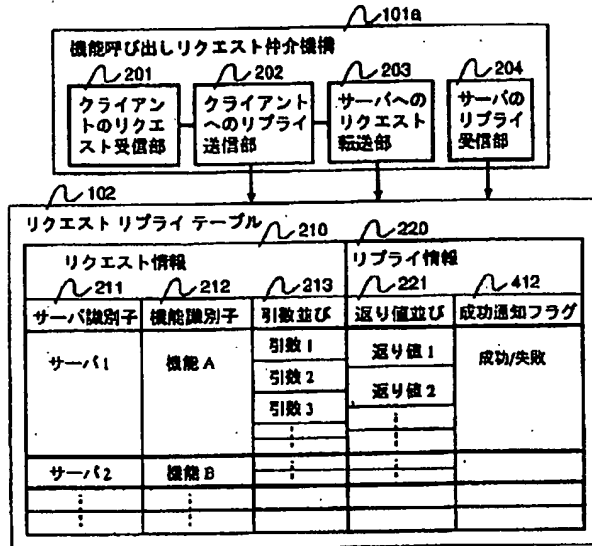 101a
機能呼び出しリクエスト仲介機構
201
202
203
204
クライアン
トのリクエ
スト受信部
クライアント
へのリプライ
送信部
サーバへの
リクエスト
転送部
サーバの
リプライ
受信部
102
リクエスト リプライ テーブル
210
220
リクエスト情報
リプライ情報
211
212
213
221
412
サーバ識別子
機能識別子
引数並び
返り値並び
成功通知フラグ
サーバ1
機能A
引数1
返り値1
成功/失敗
引数2
返り値2
引数3
サーバ2
機能B